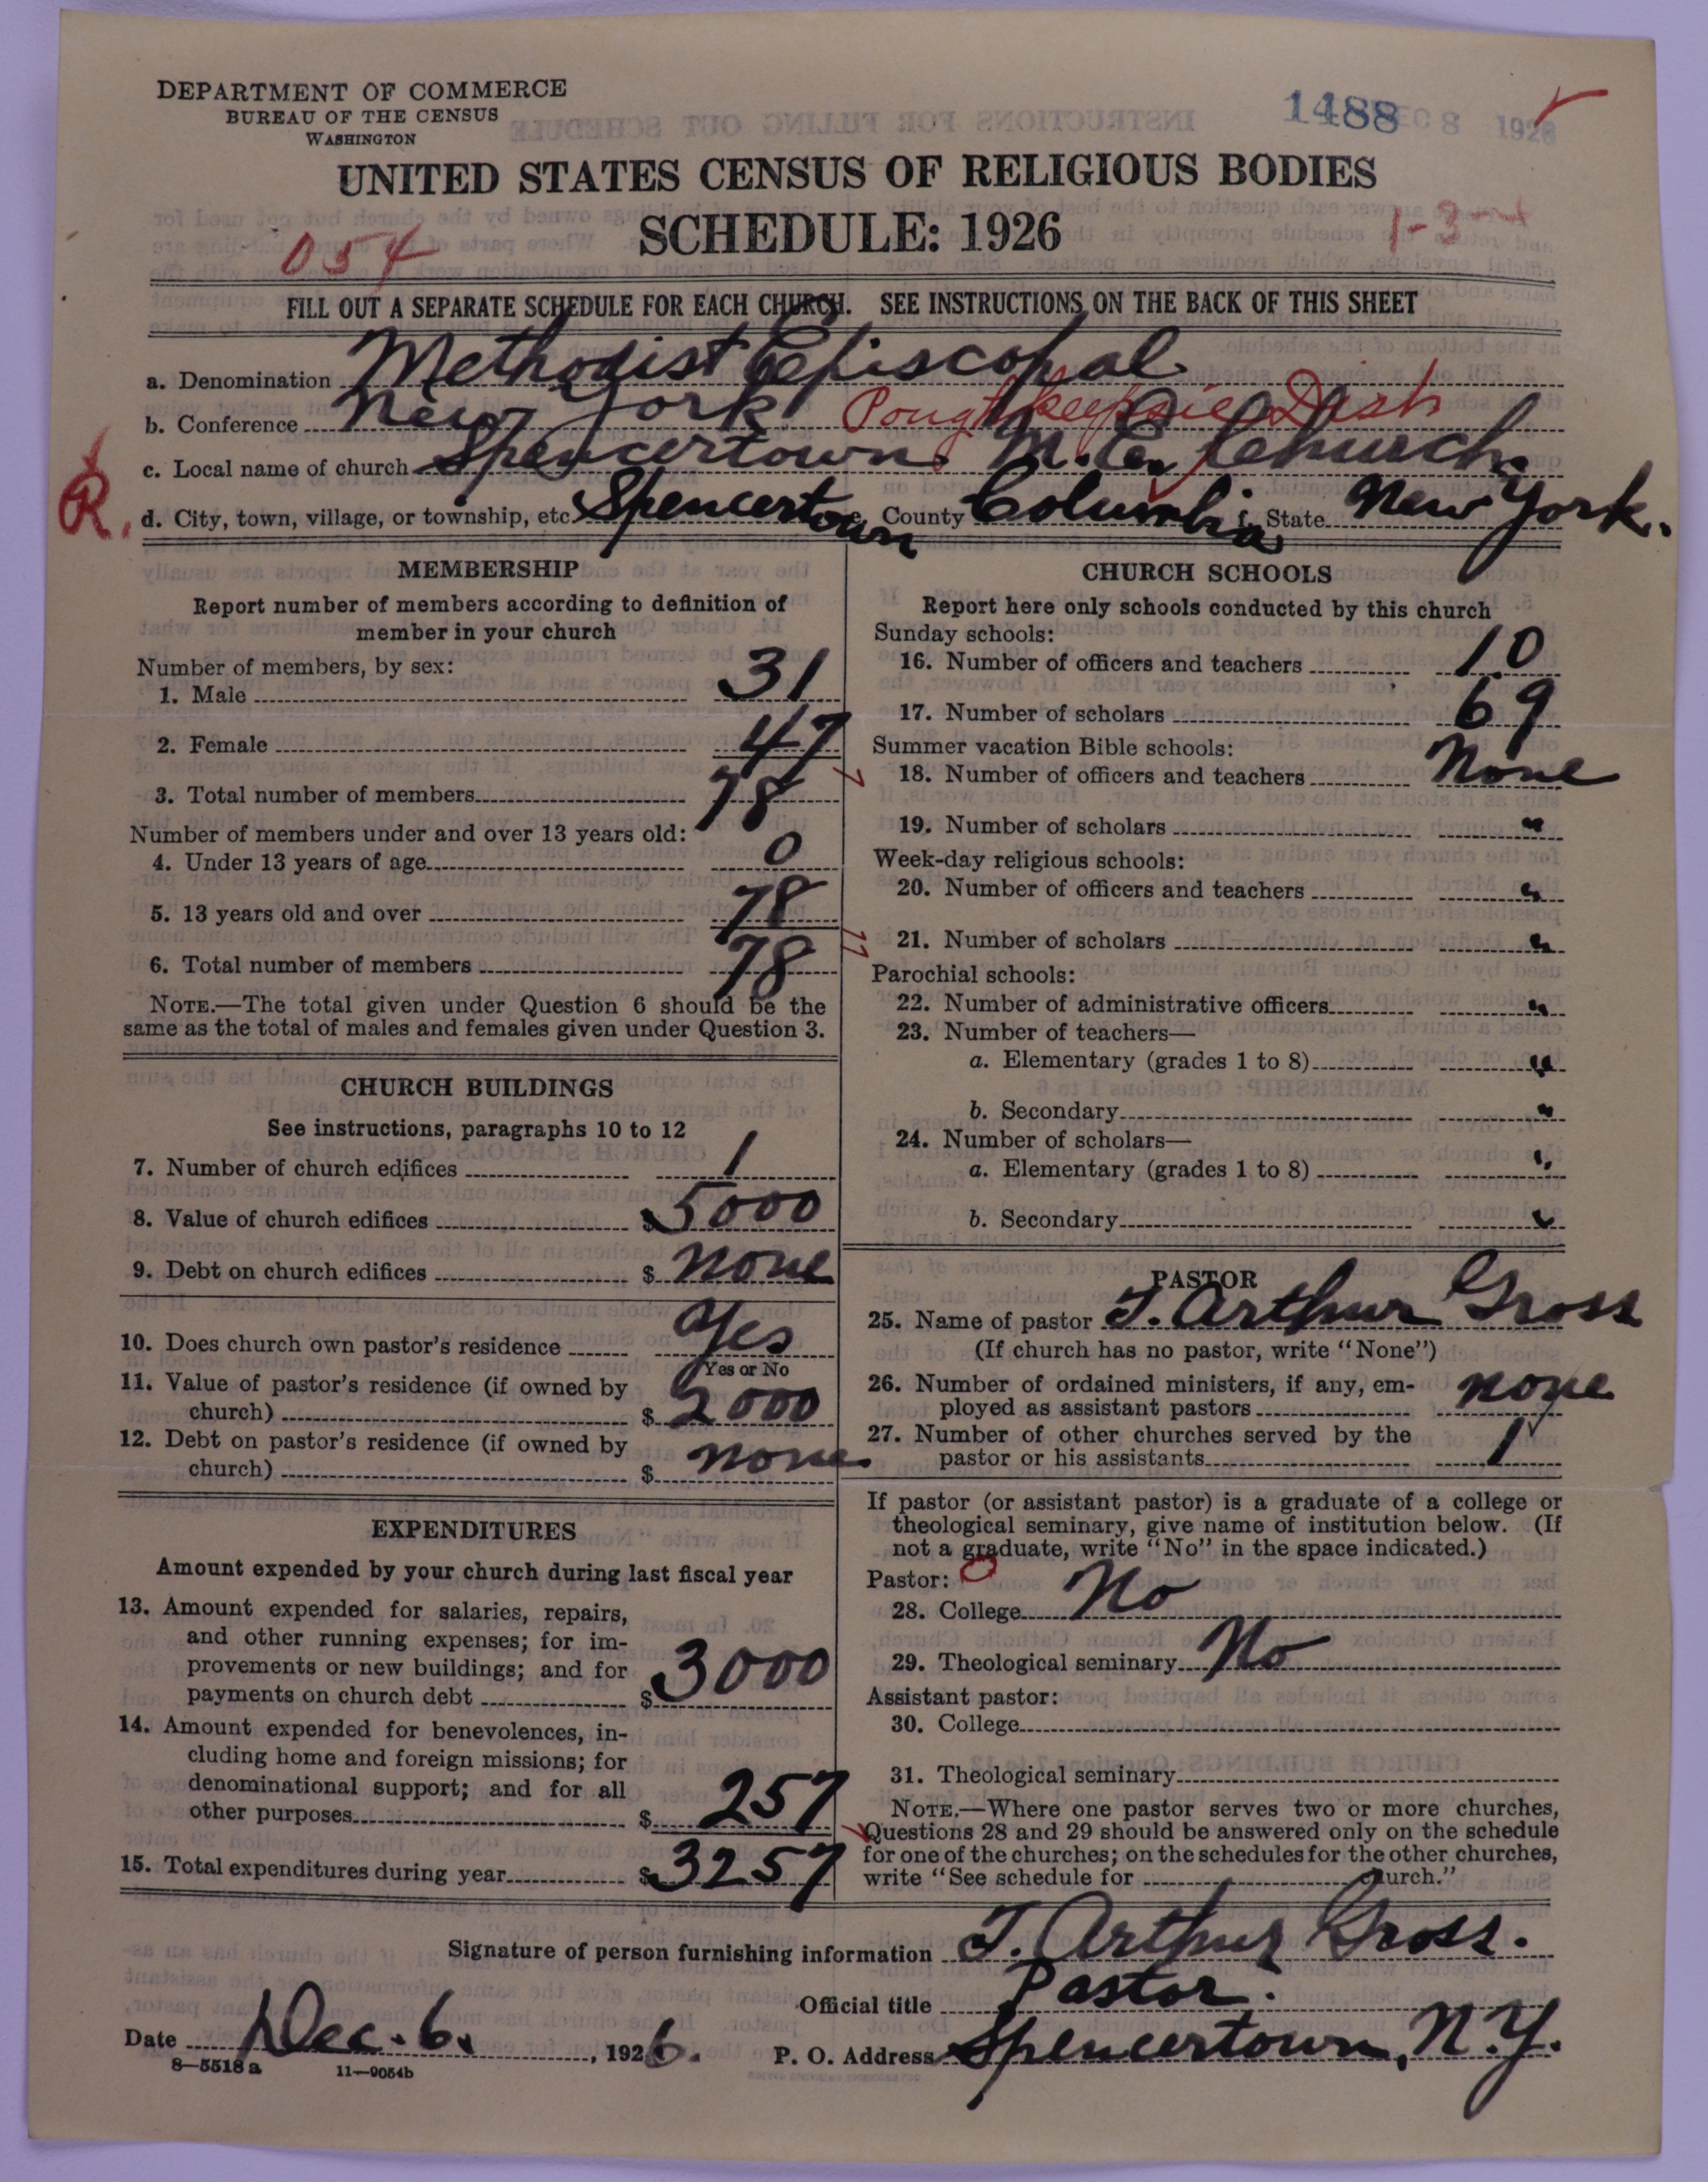 DEPARTMENT OF COMMERCE
BUREAU OF THE CENSUS
WASHINGTON
1488
DEC 8 1926
UNITED STATES CENSUS OF RELIGIOUS BODIES
SCHEDULE: 1926
054
1-3
FILL OUT A SEPARATE SCHEDULE FOR EACH CHURCH. SEE INSTRUCTIONS ON THE BACK OF THIS SHEET
a. Denomination Methodist Episcopal
b. Conference New York Poughkeepsie Dist
c. Local name of church Spencertown M. E. Church.
R. d. City, town, village, or township, etc Spencertown County Columbia State New York.
MEMBERSHIP
Report number of members according to definition of
member in your church
Number of members, by sex:
1. Male 31
2. Female 47
3. Total number of members 78
Number of members under and over 13 years old:
4. Under 13 years of age 0
5. 13 years old and over 78
6. Total number of members 78
NOTE.—The total given under Question 6 should be the
same as the total of males and females given under Question 3.
CHURCH BUILDINGS
See instructions, paragraphs 10 to 12
7. Number of church edifices 1
8. Value of church edifices $ 5000
9. Debt on church edifices $ none
10. Does church own pastor's residence Yes
Yes or No
11. Value of pastor's residence (if owned by
church) $ 2000
12. Debt on pastor's residence (if owned by
church) $ none
EXPENDITURES
Amount expended by your church during last fiscal year
13. Amount expended for salaries, repairs,
and other running expenses; for im-
provements or new buildings; and for
payments on church debt $ 3000
14. Amount expended for benevolences, in-
cluding home and foreign missions; for
denominational support; and for all
other purposes $ 257
15. Total expenditures during year $ 3257
CHURCH SCHOOLS
Report here only schools conducted by this church
Sunday schools:
16. Number of officers and teachers 10
17. Number of scholars 69
Summer vacation Bible schools:
18. Number of officers and teachers None
19. Number of scholars "
Week-day religious schools:
20. Number of officers and teachers "
21. Number of scholars "
Parochial schools:
22. Number of administrative officers "
23. Number of teachers—
a. Elementary (grades 1 to 8) "
b. Secondary "
24. Number of scholars—
a. Elementary (grades 1 to 8) "
b. Secondary "
PASTOR
25. Name of pastor T. Arthur Gross
(If church has no pastor, write "None")
26. Number of ordained ministers, if any, em-
ployed as assistant pastors none
27. Number of other churches served by the
pastor or his assistants 1
If pastor (or assistant pastor) is a graduate of a college or
theological seminary, give name of institution below. (If
not a graduate, write "No" in the space indicated.)
Pastor:
28. College No
29. Theological seminary No
Assistant pastor:
30. College
31. Theological seminary
NOTE.—Where one pastor serves two or more churches,
Questions 28 and 29 should be answered only on the schedule
for one of the churches; on the schedules for the other churches,
write "See schedule for church."
Signature of person furnishing information T. Arthur Gross.
Official title Pastor.
Date Dec. 6. , 1926. P. O. Address Spencertown, N. Y.
8—5518 a 11—9054b